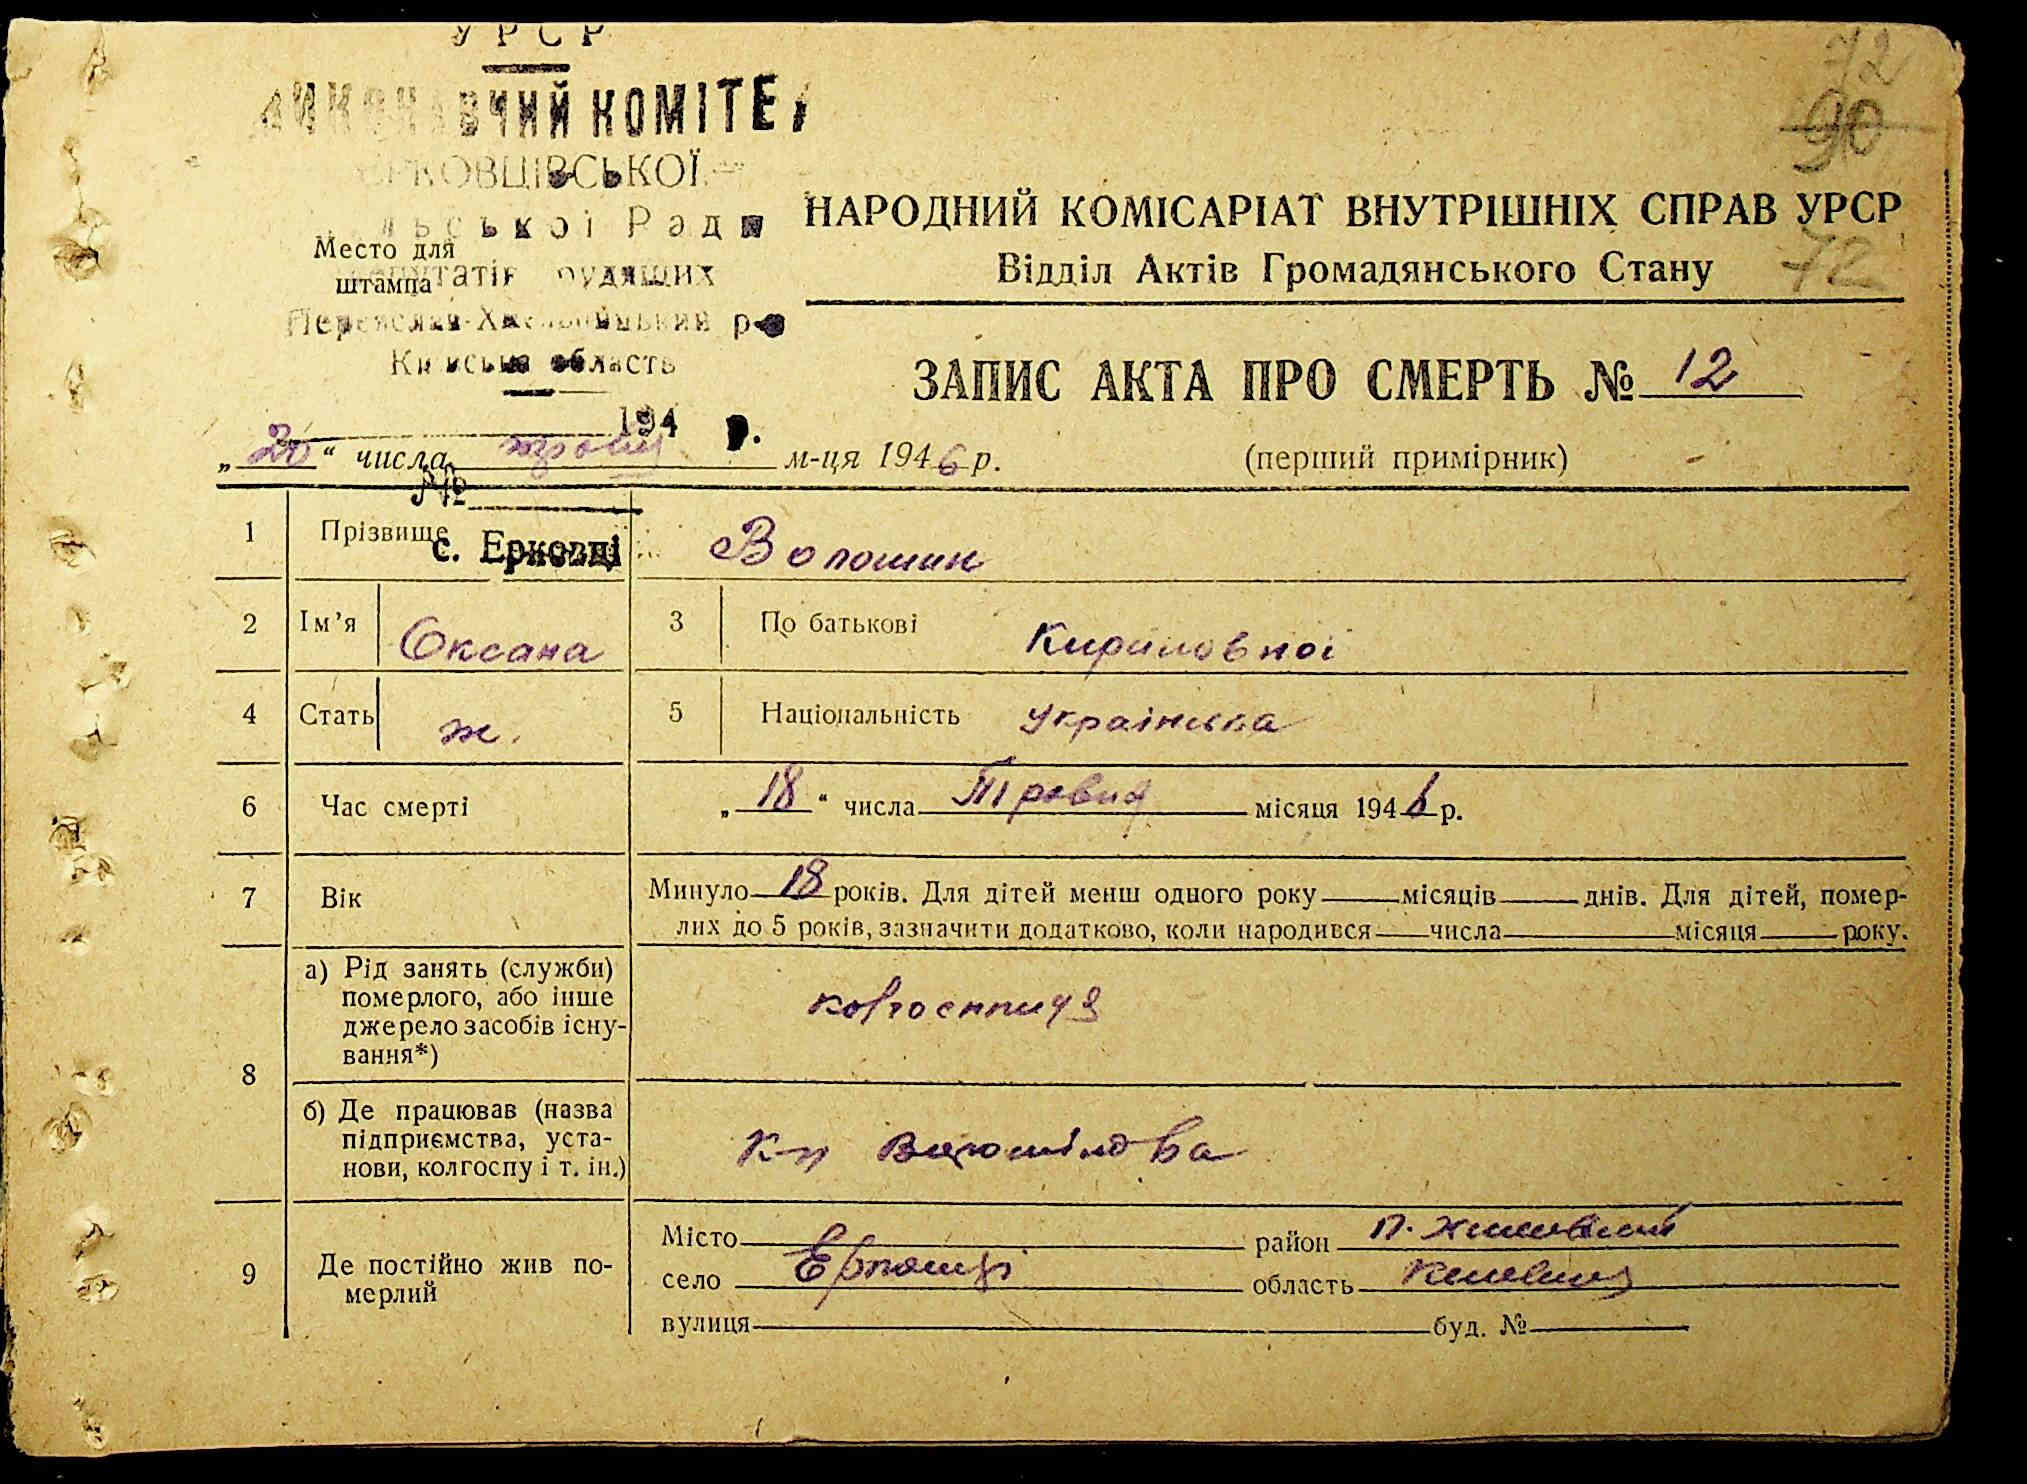 УРСР
ВИКОНАВЧИЙ КОМІТЕТ
ЄРКОВЦІВСЬКОЇ
льської Ради
Место для
штампа
депутатів трудящих
Переяслав-Хмельницький р-н
Київська область
194 р.
№
с. Ерковці
72
90
72
НАРОДНИЙ КОМІСАРІАТ ВНУТРІШНІХ СПРАВ УРСР
Відділ Актів Громадянського Стану
ЗАПИС АКТА ПРО СМЕРТЬ № 12
„20“ числа травня м-ця 1946 р. (перший примірник)
1 Прізвище Волошин
2 Ім’я Оксана 3 По батькові Кириловної
4 Стать ж. 5 Національність українька
6 Час смерті „18“ числа Травня місяця 1946 р.
7 Вік Минуло 18 років. Для дітей менш одного року місяців днів. Для дітей, помер-
лих до 5 років, зазначити додатково, коли народився числа місяця року.
8 а) Рід занять (служби)
померлого, або інше
джерело засобів існу-
вання*) колгоспниця
б) Де працював (назва
підприємства, уста-
нови, колгоспу і т. ін.) к-п Ворошілова
9 Де постійно жив по-
мерлий
Місто район П. Хмельний
село Ерковці область Київська
вулиця буд. №